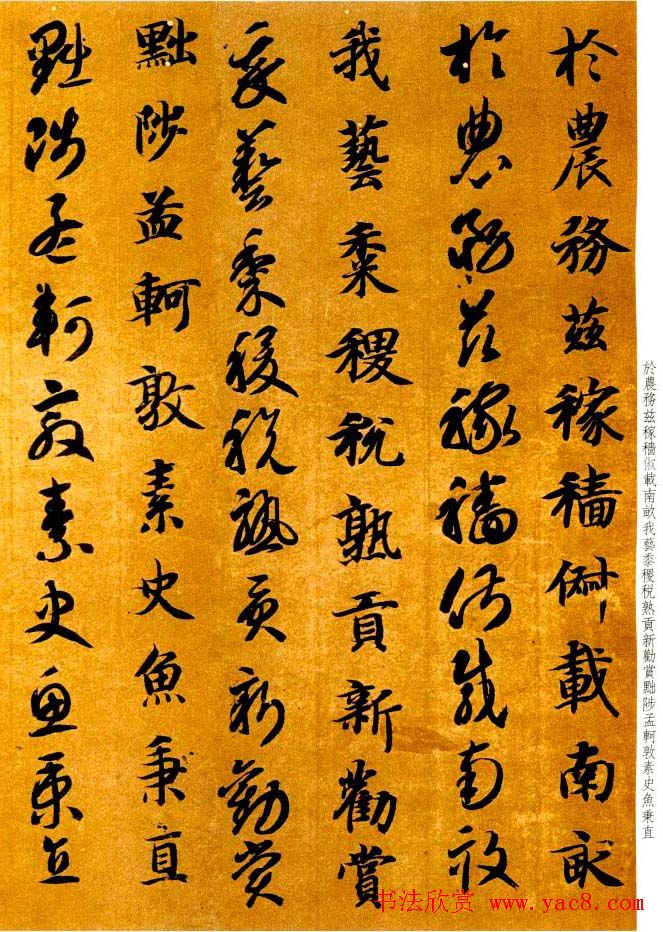 於農務茲稼穡俶載南畝
於農務茲稼穡俶載南畝
我藝黍稷稅熟貢新勸賞
我藝黍稷稅熟貢新勸賞
黜陟孟軻敦素史魚秉直
黜陟孟軻敦素史魚秉直
於農務茲稼穡俶載南畝我藝黍稷稅熟貢新勸賞黜陟孟軻敦素史魚秉直
书法欣赏 www.yac8.com